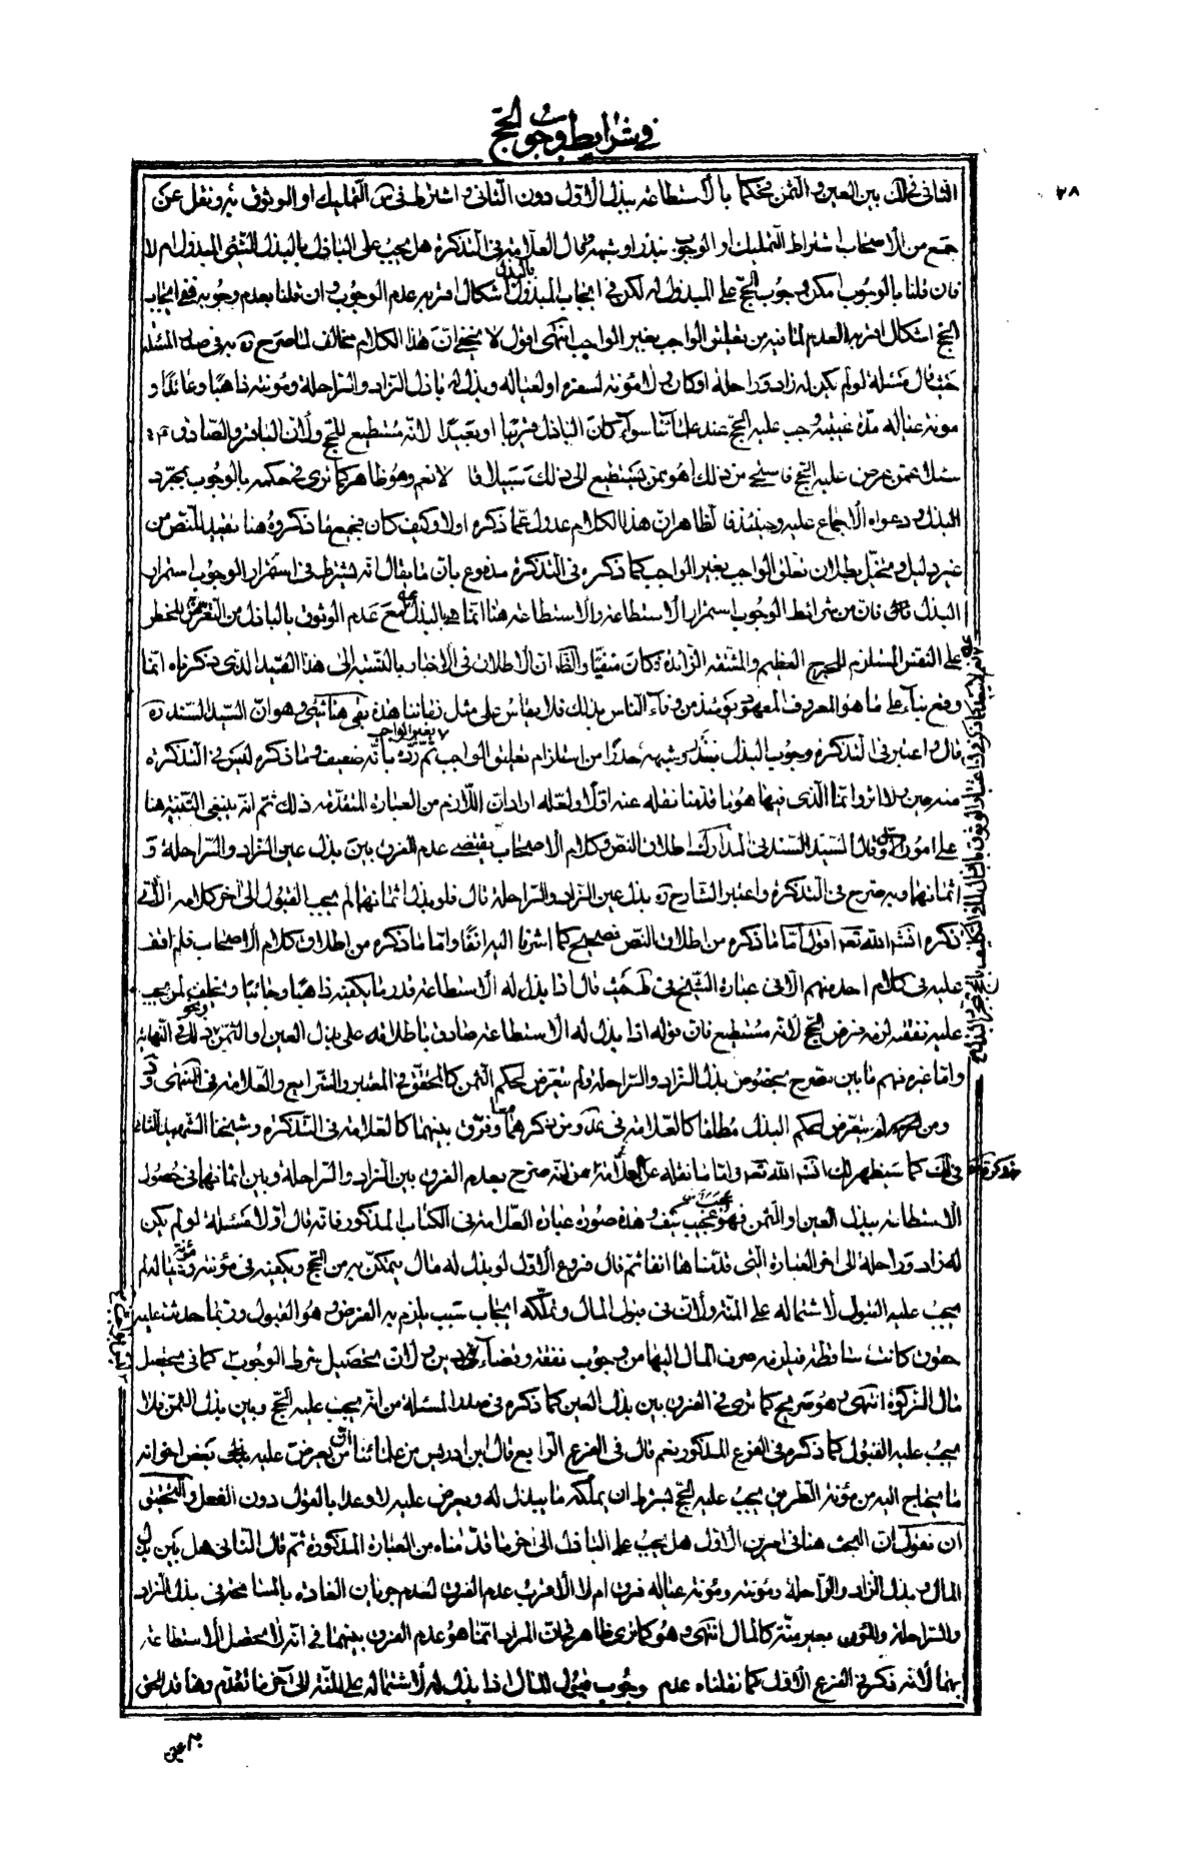 في شرايط وجوب الحج
٢٨
الثاني في لك بين العين والثمن محكما بالاستطاعة ببذل الاول دون الثاني واشترط في التمليك او الوثوق به ونقل عن
جمع من الاصحاب اشتراط التمليك او الوجوب بنذر او شبهه وقال العلامة في التذكرة هل يجب على الباذل بالبذل الشئ المبذول ام لا
فان قلنا بالوجوب امكن وجوب الحج على المبذول له لكن في ايجاب المبذول بالبذل اشكال اقربه عدم الوجوب وان قلنا بعدم وجوبه ففي ايجاب
الحج اشكال اقربه العدم لما فيه من تعليق الواجب بغير الواجب انتهى اقول لا يخفى ان هذا الكلام مخالف لما صرح ره به في صدر المسئلة
حيث قال مسئلة لو لم يكن له زاد وراحلة او كان ولا مؤنة لسفره او لعياله وبذل له باذل الزاد والراحلة ومؤنته ذاهبا وعائدا و
مونة عياله مدة غيبته وجب عليه الحج عند علمائنا سواء كان الباذل قريبا او بعيدا لانه مستطيع للحج ولان الباقر والصادق ع
سئلا عمن عرض عليه الحج فاستحى من ذلك اهو ممن يستطيع الى ذلك سبيلا قالا نعم وهو ظاهر كما ترى في حكمه بالوجوب بمجرد
البذل ودعواه الاجماع عليه وحينئذ فالظاهر ان هذا الكلام عدول عما ذكره اولا وكيف كان فجميع ما ذكروه هنا تقييد للنص من
غير دليل وتخيل بطلان تعلق الواجب بغير الواجب كما ذكره في التذكرة مدفوع بان ما يقال انه يشترط في استمرار الوجوب استمرار
البذل فان من شرائط الوجوب استمرار الاستطاعة والاستطاعة هنا انما هي بالبذل نعم مع عدم الوثوق بالباذل من التعرض للخطر
على النفس المستلزم للحرج العظيم والمشقة الزائدة كان منفيا والظ ان الاطلاق في الاخبار بالنسبة الى هذا القيد الذي ذكرناه انما
وقع بناء على ما هو المعروف المعهود يومئذ من وفاء الناس بذلك فلا يقاس على مثل زماننا هذه بقي هنا شئ وهو ان السيد السند ره
قال واعتبر في التذكرة وجوب البذل بنذر وشبهه حذرا من استلزام تعليق الواجب بغير الواجب ثم رده بانه ضعيف وما ذكره ليس في التذكرة
منه عين ولا اثر وانما الذي فيها هو ما قدمنا نقله عنه اولا ولعله اراد ان اللازم من العبارة المتقدمة ذلك ثم انه ينبغي التنبيه هنا
على امور الاول قال السيد السند في المدارك اطلاق النص وكلام الاصحاب يقتضي عدم الفرق بين بذل عين الزاد والراحلة و
اثمانهما وبه صرح في التذكرة واعتبر الشارح ره بذل عين الزاد والراحلة قال فلو بذل اثمانهما لم يجب القبول الى اخر كلامه الاتي
ذكره انشاء الله تعه اقول اما ما ذكره من اطلاق النص فصحيح كما اشرنا اليه انفا واما ما ذكره من اطلاق كلام الاصحاب فلم اقف
عليه في كلام احد منهم الا في عبارة الشيخ في ط حيث قال اذا بذل له الاستطاعة قدر ما يكفيه ذاهبا وجائيا ويخلف لمن يجب
عليه نفقته لزمه فرض الحج لانه مستطيع فان قوله اذا بذل له الاستطاعة صادق باطلاقه على بذل العين او الثمن ونحو ذلك في النهاية
واما غيره فهم ما بين مصرح بخصوص بذل الزاد والراحلة ولم يتعرض لحكم الثمن كالمحقق في المعتبر والشرايع والعلامة في المنتهى و
ومن لم يتعرض لحكم البذل مطلقا كالعلامة في عد ومن ذكرهما وفرق بينهما كالعلامة في التذكرة وشيخنا الشهيد الثاني
في لك كما سيظهر لك انشاء الله تعه واما ما نقله عن العلامة من انه صرح بعدم الفرق بين الزاد والراحلة وبين اثمانهما في حصول
الاستطاعة ببذل العين او الثمن فهو عجيب وهذه صورة عبارة العلامة في الكتاب المذكور فانه قال اولا مسئلة لو لم يكن
له زاد وراحلة الى اخر العبارة التي قدمناها انفا ثم قال فروع الاول لو بذل له مال يتمكن به من الحج ويكفيه في مؤنته ومؤنة عياله لم
يجب عليه القبول لاشتماله على المنة ولان في قبول المال وتملكه ايجاب سبب يلزم به الفرض وهو القبول وربما حدث عليه
حقوق كانت ساقطة فيلزمه صرف المال اليها من وجوب نفقة وقضاء دين ولان تحصيل شرط الوجوب كما في تحصيل
مال الزكوة انتهى وهو صريح كما ترى في الفرق بين بذل العين كما ذكره في صدر المسئلة من انه يجب عليه الحج وبين بذل الثمن فلا
يجب عليه القبول كما ذكره في الفرع المذكور نعم قال في الفرع الرابع قال ابن ادريس من علمائنا ان من يعرض عليه بعض اخوانه
ما يحتاج اليه من مؤنة الطريق يجب عليه الحج بشرط ان يملكه ما يبذل له ويعرض عليه لا وعدا بالقول دون الفعل والتحقيق
ان نقول ان البحث هنا في امرين الاول هل يجب على الباذل الى اخر ما قدمناه من العبارة المذكورة ثم قال الثاني هل بين بذل
المال وبذل الزاد والراحلة ومؤنته ومؤنة عياله فرق ام لا الاقرب عدم الفرق لعدم جريان العادة بالمسامحة في بذل الزاد
والراحلة والمؤن بغير منة كالمال انتهى وهو كما ترى ظاهر في ان المراد انما هو عدم الفرق بينهما في انه لا يحصل الاستطاعة
بهما لانه ذكر في الفرع الاول كما نقلناه عدم وجوب قبول المال اذا بذل له لاشتماله على المنة الى آخر ما تقدم وهنا قد الحق
به عين